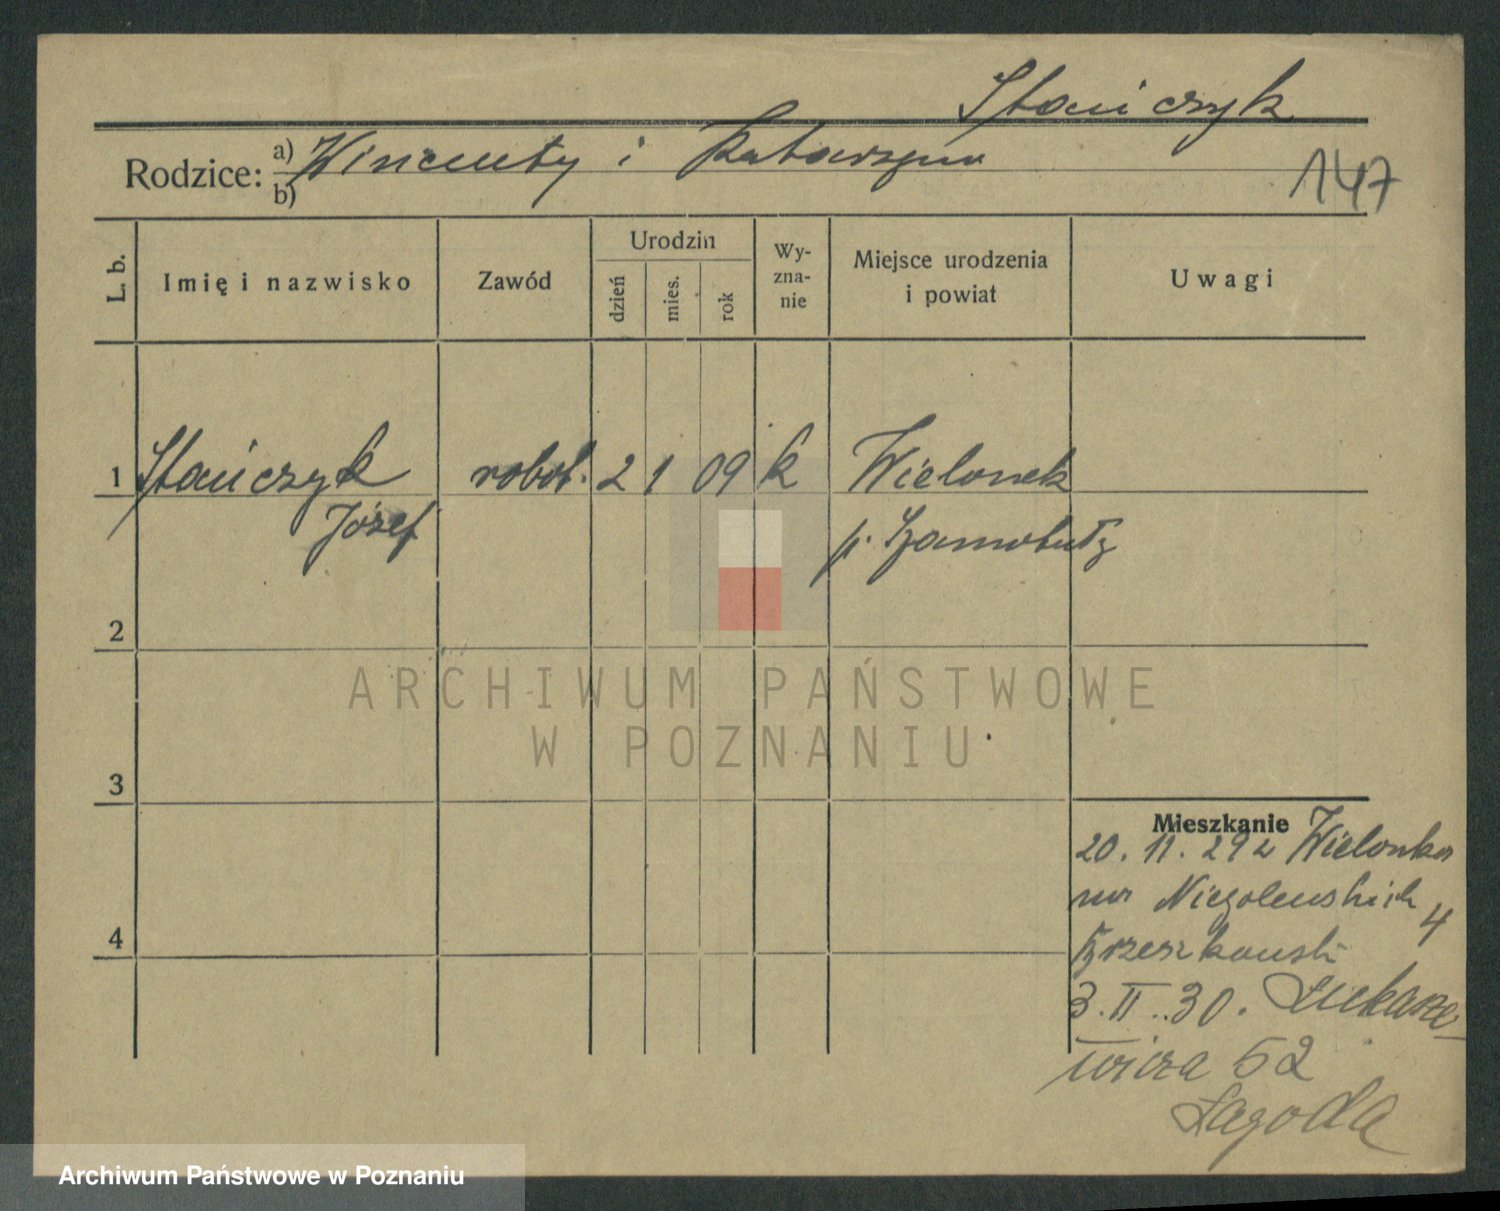 Stańczyk
Rodzice: a) Wincenty i Katarzyna
b)
147
L. b.
Imię i nazwisko
Zawód
Urodzin
dzień
mies.
rok
Wy-
zna-
nie
Miejsce urodzenia
i powiat
Uwagi
1 Stańczyk robot. 2 1 09 k Wielonek
Józef p. Szamotuły
2
3
4
ARCHIWUM PAŃSTWOWE
W POZNANIU
Mieszkanie
20. 11. 29 z Wielonka
na Niegolewskich 4
3. II. 30. Łukasze-
wicza 52
Łagoda
Archiwum Państwowe w Poznaniu